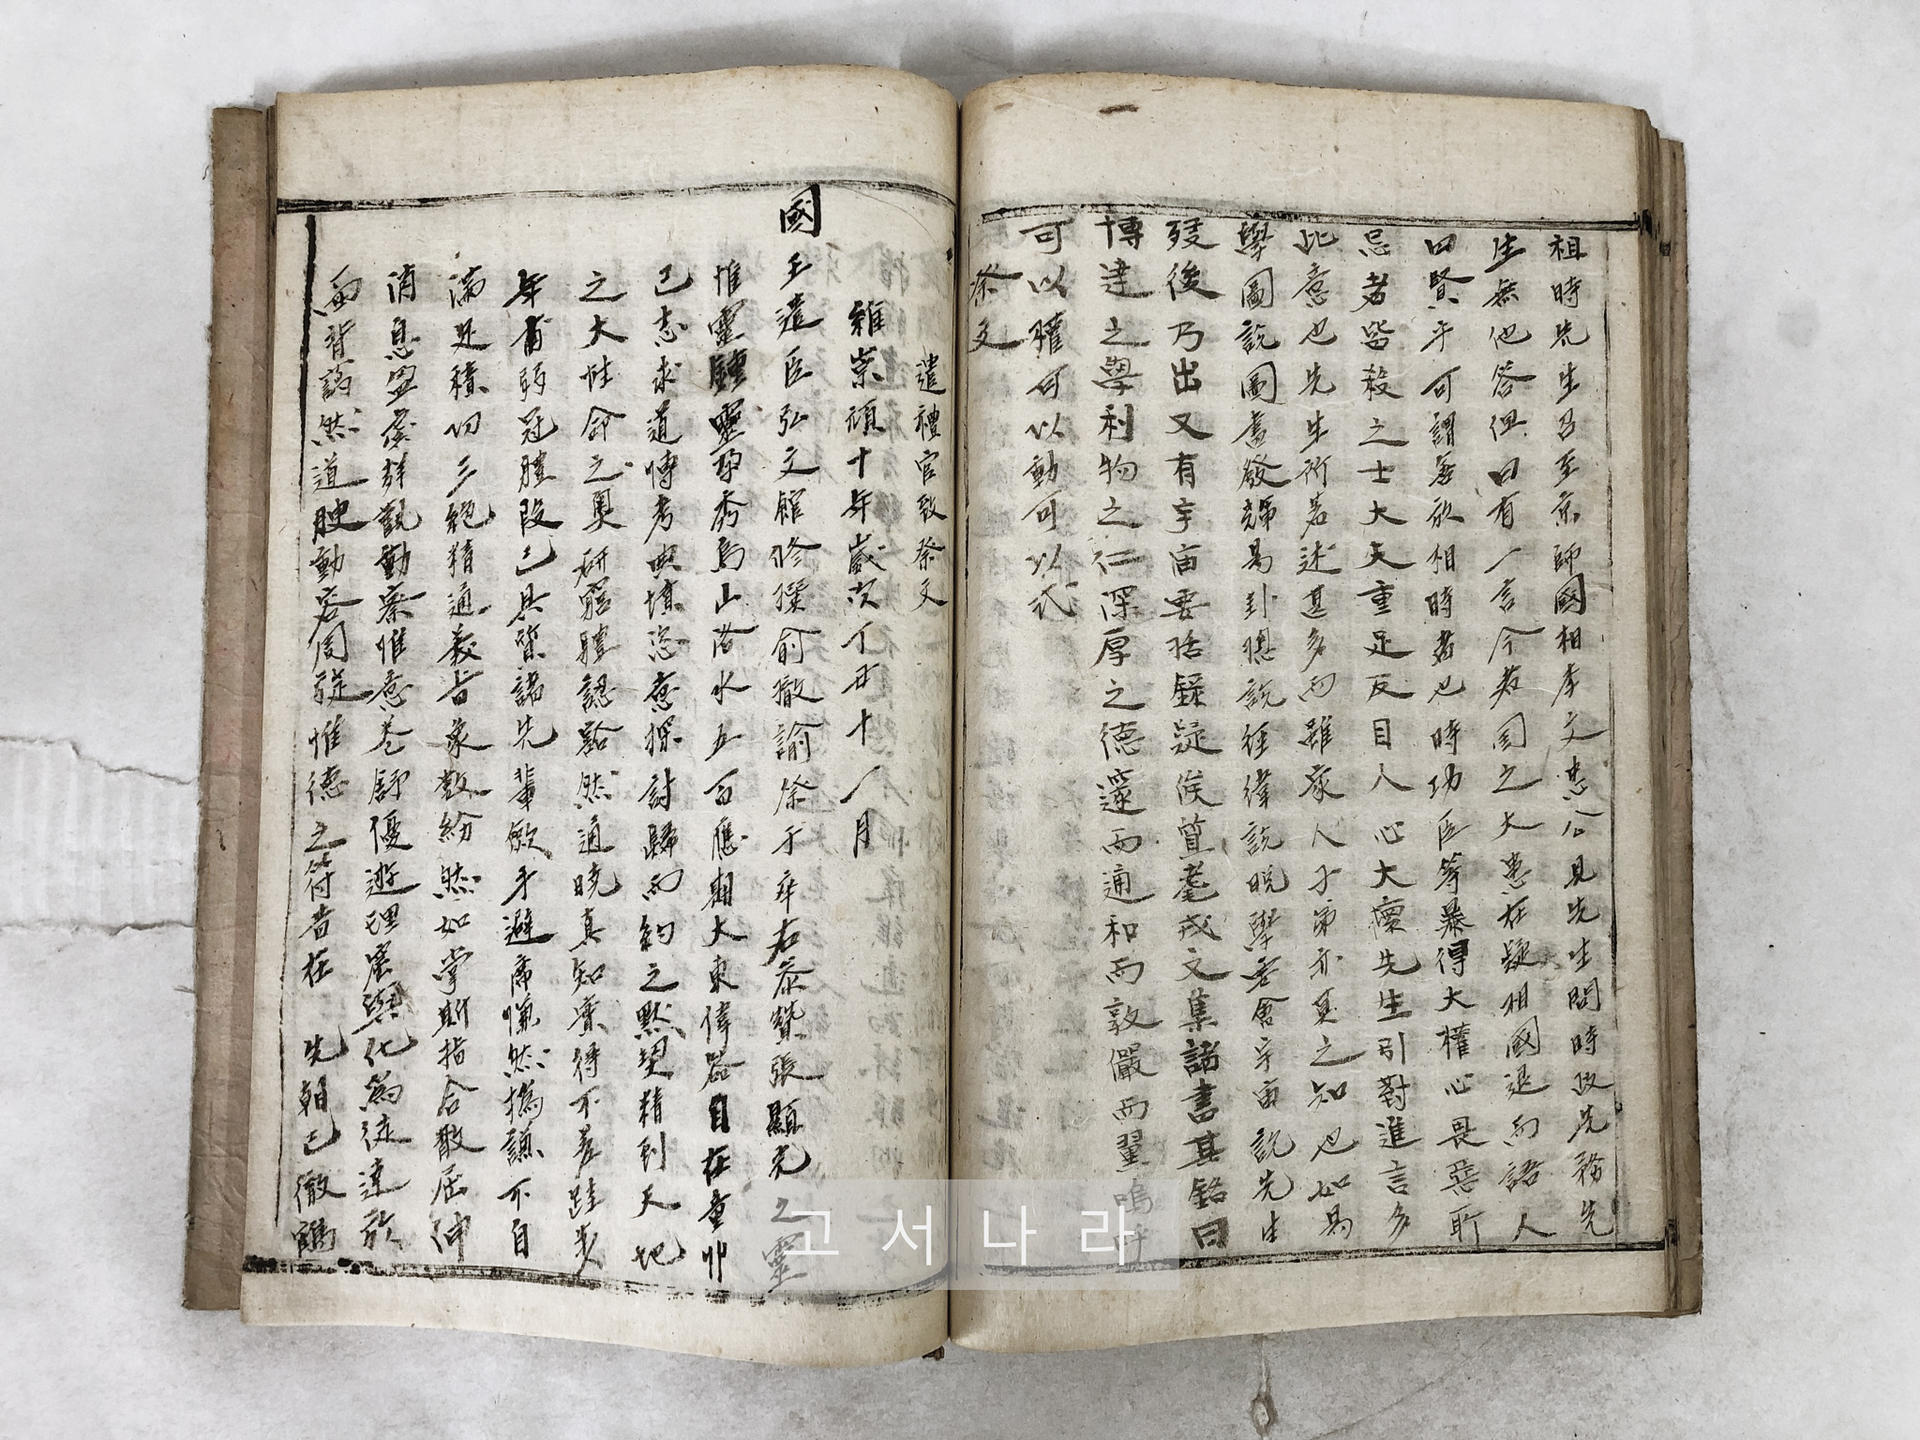 祖時先生召至京師國相李文忠公見先生問時政先務先
生無他答但曰有一言今者國之大患在疑相國退而語人
曰賢乎可謂善於相時者也時功臣等暴得大權心畏惡所
忌者皆殺之士大夫重足反目人心大懷先生引對進言多
此意也先生所著述甚多而雖家人子弟亦莫之知也如易
學圖說圖書發揮易卦總說經緯說晩學要會宇宙說先生
歿後乃出又有宇宙要括錄疑俟質耄戒文集諸書其銘曰
博達之學利物之仁深厚之德邃而通和而敦儼而翼嗚呼
可以權可以動可以式
祭文
遣禮官致祭文
維崇禎十年歲次丁丑十一月
國王遣臣弘文館修撰俞撤諭祭于卒右參贊張顯光之靈
惟靈鍾靈孕秀烏山洛水五百應期大東偉器自在童丱
已志求道博考典墳恣意探討歸而約之默契精到天地
之大性命之奧研窮體認豁然通曉真知實得不差跬步
年甫弱冠體段已具築諸先輩斂手避席慊然撝謙不自
滿足積功三絶精通羲昔象數紛然如掌斯指合散屈伸
消息盈虛群觀動察惟意卷舒優遊理窟與化為徒達於
面背謁然道腴動容周旋惟德之符昔在 先朝已徹鶴
고서나라